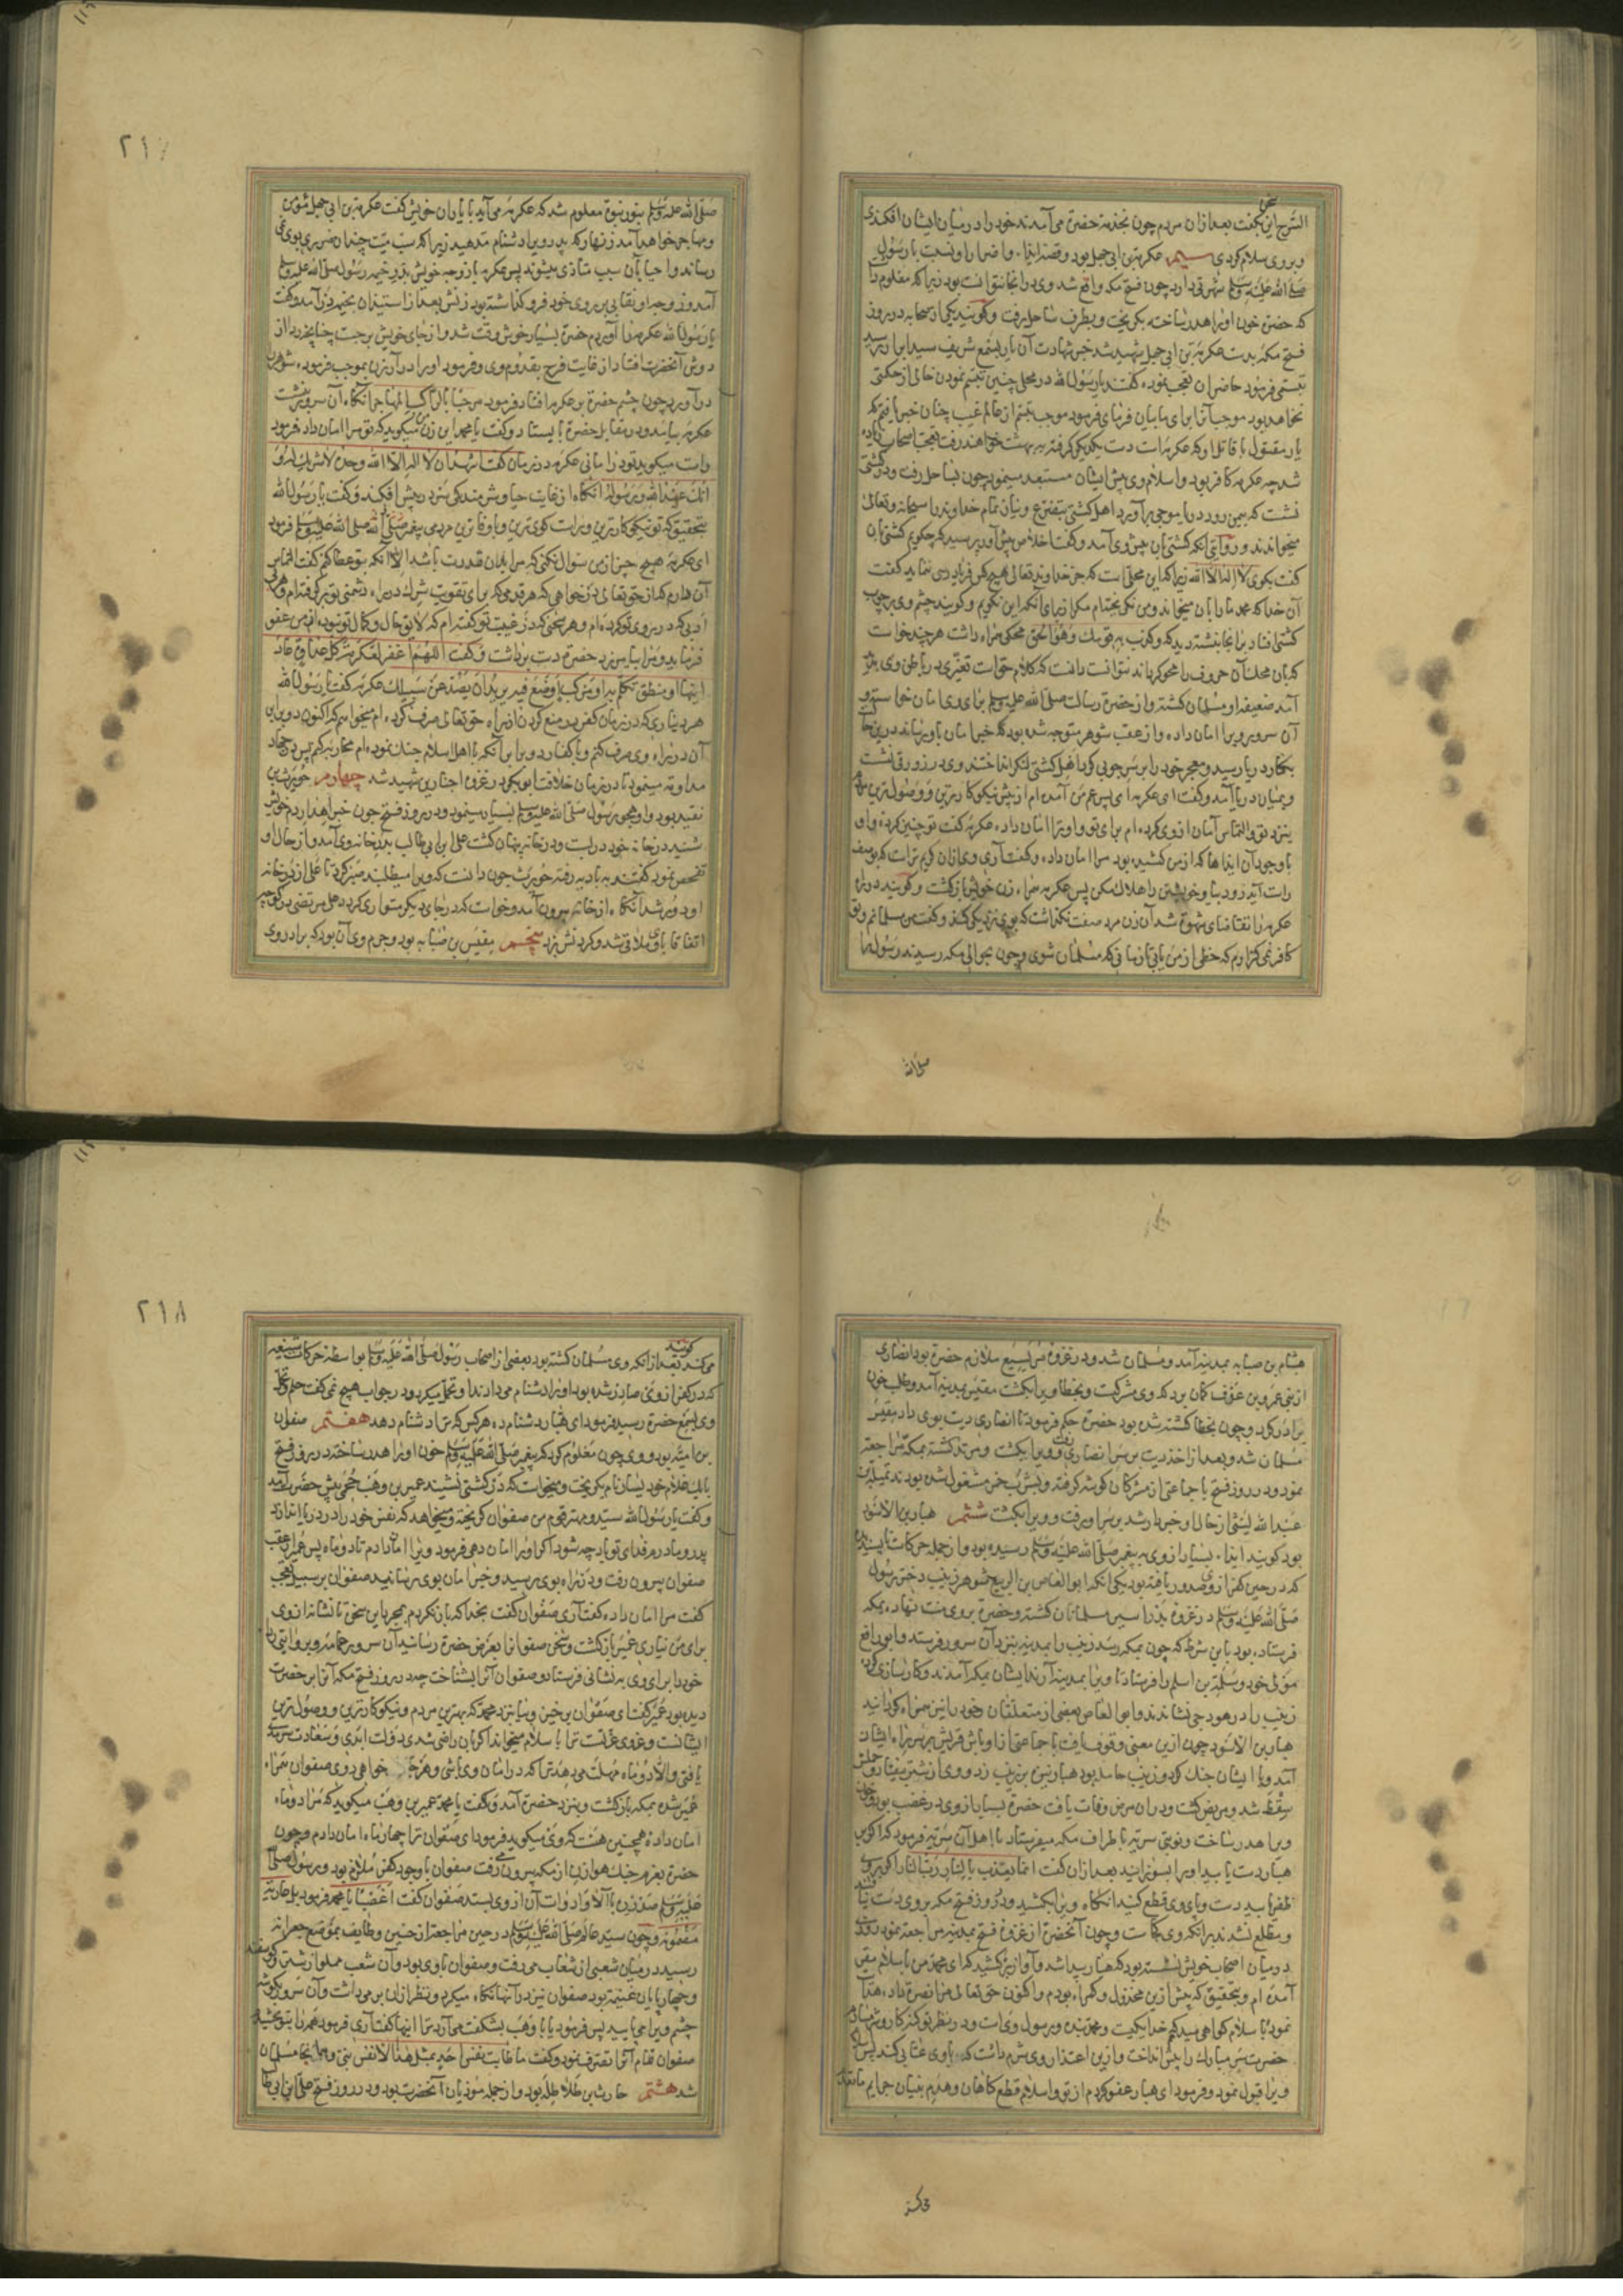 السرح این بگفت بعد ازان مردم چون بخدمة حضرة می آمدند خود را در میان ایشان افکندی
و بر وی سلام کردی سیم عکرمة بن ابی جهل بود و قصه ایذا و اضرار او نسبت با رسول
صلی الله علیه وسلم شهرتی دارد چون فتح مکه واقع شد وی در انجا نتوانست بود زیرا که معلوم داشت
که حضرة خون او را هدر ساخته بگریخت و بطرف ساحل رفت و گویند یکی از صحابه در روز
فتح مکه بدست عکرمة بن ابی جهل شهید شد خبر شهادت آن یار بسمع شریف سید ابرار رسید
تبسمی فرمود حاضران تعجب نموده گفتند یا رسول الله در محلی چنین تبسم نمودن خالی از حکمتی
نخواهد بود موجب آنرا برای ما بیان فرمای فرمود موجب تبسم از عالم غیب چنان خبر یافتم که
یار مقتول با قاتل او که عکرمه است دست یکدیگر گرفته به بهشت خواهند رفت تعجب اصحاب زیاده
شد چه عکرمه کافر بود و اسلام وی پیش ایشان مستبعد مینمود چون بساحل رفت و در کشتی
نشست که بیمن رود دریا بموجی برآورد اهل کشتی بتضرع و نیاز تمام خداوند را سبحانه و تعالی
میخواندند و روایتی آنکه کشتیبان پیش وی آمد و گفت اخلاص پیش آور پرسید که چگویم کشتیبان
گفت بگوی لا اله الا الله زیرا که این محلی است که جز خداوند تعالی هیچ کس فریادرسی ننماید گفت
آن خدا که محمد ما را بان میخواند و من نگریخته ام مگر از برای آنکه این نگویم و گویند چشم وی بر چوب
کشتی افتاد بر انجا نبشته دید که وکذب به قومک وهو الحق محکی همراه داشت هر چند خواست
که بان محک آن حروف را محو گرداند نتوانست دانست که کلام حق است تغیری در باطن وی پدید
آمد ضعیفه او مسلمان گشته و از حضرة رسالت صلی الله علیه وسلم برای وی امان خواسته و
آن سرور ویرا امان داده و از عقب شوهر متوجه شده بود که خبر امان باو رساند درین حال
بکنار دریا رسید و معجر خود را بر سر چوبی کرد اهل کشتی لنگر انداختند وی در زورقی نشست
و بمیان دریا آمد و گفت ای عکرمه ای پسر عم من آمده ام از پیش نیکوکارترین و وصول ترین مردم
بنزد تو و التماس امان از وی کرده ام برای تو و او ترا امان داد عکرمه گفت تو چنین کرده و او
با وجود آن ایذاها که از من کشیده بود مرا امان داده و گفت آری وی ازان کریم تر است که بوصف
راست آید زود بیا و خویشتن را هلاک مکن پس عکرمه همراه زن خویش بازگشت و گویند در راه
عکرمه را تقاضای شهوة شد آن زن مرد صفت نگذاشت که بوی نزدیکی کند و گفت من مسلمانم و تو
کافر نمی گذارم که حظی از من یابی تا زمانی که مسلمان شوی و چون بحوالی مکه رسیدند رسول را
صلی الله
۲۱۷
صلی الله علیه وسلم بنور نبوة معلوم شد که عکرمه می آید با یاران خویش گفت عکرمة بن ابی جهل مؤمن
و مهاجر خواهد آمد زنهار که پدر ویرا دشنام مدهید زیرا که سب میت چندان ضرری بوی نمی
رساند و احیا بآن سبب متأذی میشوند پس عکرمه با زوجه خویش بدر خیمه رسول صلی الله علیه وسلم
آمد و زوجه او نقابی بر روی خود فرو گذاشته بود زنش بعد از استیذان بخیمه درآمد و گفت
یا رسول الله عکرمه را آوردم حضرة بسیار خوش وقت شد و از جای خویش برجست چنانچه ردا از
دوش آنحضرت افتاد از غایت فرح بقدوم وی و فرمود او را درآر زن بموجب فرموده شوهر
درآورد چون چشم حضرة بر عکرمه افتاد فرمود مرحبا بالراکب المهاجر آنگاه آن سرور بنشست
عکرمه بیامد و در مقابل حضرة بایستاد و گفت یا محمد این زن میگوید که تو مرا امان داده فرمود
راست میگوید تو در امانی عکرمه در زمان گفت اشهد ان لا اله الا الله وحده لا شریک له و
انک عبد الله ورسوله آنگاه از غایت حیا و شرمندگی سر در پیش افکند و گفت یا رسول الله
بتحقیق که تو نیکوکارترین و راست گوی ترین و با وفاترین مردمی پیغمبر صلی الله علیه وسلم فرمود
ای عکرمه هیچ چیز از من سؤال نکنی که مرا بران قدرت باشد الا آنکه بتو عطا کنم گفت التماس
آن دارم که از حق تعالی در خواهی که هر قدمی که برای تقویت شرک در راه دشمنی تو برگرفته ام و هر بی
ادبی که در روی تو کرده ام و هر سخنی که در غیبت تو گفته ام که لایق حال و کمال تو نبوده از من عفو
فرماید و مرا بیامرزد حضرة دست برداشت و گفت اللهم اغفر لعکرمة کل عداوة عاد
انیها او منطق تکلم به او مرکب اوضع فیه یرید ان یصد عن سبیلک عکرمه گفت یا رسول الله
هر دیناری که در زمان کفر در منع کردن از راه حق تعالی صرف کرده ام میخواهم که اکنون دو برابر
آن در راه وی صرف کنم و با کفار دو برابر آنکه با اهل اسلام جنگ نموده ام محاربه کنم پس در جهاد
مداومة مینمود تا در زمان خلافت ابوبکر در غزوه اجنادین شهید شد چهارم حویرث بن
نقید بود و او هجو رسول صلی الله علیه وسلم بسیار مینمود و در روز فتح چون خبر اهدار دم خویش
شنید در خانه خود در بست و در خانه پنهان گشت علی ابن ابی طالب بدر خانه وی آمد و از حال او
تفحص نمود گفتند به بادیه رفته حویرث چون دانست که ویرا میطلبند صبر کرد تا علی از در خانه
او دور شد آنگاه از خانه بیرون آمد و خواست که در جای دیگر متواری گردد علی مرتضی در کوچه
اتفاقا با وی ملاقی شد و گردنش بزد پنجم مقیس بن صبابه بود و جرم وی آن بود که برادر وی
هشام بن صبابه بمدینه آمد و مسلمان شد و در غزوه مریسیع ملازم حضرة بود انصاری
از بنی عمرو بن عوف گمان برد که وی مشرکست و بخطا ویرا بکشت مقیس بمدینه آمد و طلب خون
برادر کرد و چون بخطا کشته شده بود حضرة حکم فرمود تا انصاری دیت بوی داد مقیس
مسلمان شد و بعد از اخذ دیت بر سر انصاری رفت و ویرا بکشت و مرتد گشته بمکه مراجعة
نمود و در روز فتح با جماعتی از مشرکان گوشه گرفته و بشرب خمر مشغول شده بودند نمیلة بن
عبد الله لیثی از حال او خبردار شد بر سر او رفت و ویرا بکشت ششم هبار بن الاسود
بود گویند ایذاء بسیار از وی به پیغمبر صلی الله علیه وسلم رسیده بود و از جمله حرکات ناپسندیده
که در حین کفر از وی صدور یافته بود یکی آنکه ابوالعاص بن الربیع شوهر زینب دختر رسول
صلی الله علیه وسلم در غزوه بدر اسیر مسلمانان گشته و حضرة بر وی منت نهاده بمکه
فرستاده بود باین شرط که چون بمکه رسد زینب را بمدینه بنزد آن سرور فرستد و ابو رافع
مولی خود و سلمة بن اسلم را فرستاد تا ویرا بمدینه آرند ایشان بمکه آمدند و کارسازی کرده
زینب را در هودجی نشاندند و ابوالعاص بعضی از متعلقان خود را نیز همراه گردانید
هبار بن الاسود چون ازین معنی وقوف یافت با جماعتی از اوباش قریش بر سر راه ایشان
آمد و با ایشان جنگ کرد و زینب حامله بود هبار نیزه بر زینب زد و وی از شتر بیفتاد و حملش
سقط شد و مریض گشت و دران مرض وفات یافت حضرة بسیار از وی در غضب بود و خون
ویرا هدر ساخت و نوبتی سریه باطراف مکه میفرستاد با اهل آن سریه فرمود که اگر بر
هبار دست یابید او را بسوزانید بعد ازان گفت انما یعذب بالنار رب النار اگر بر وی
ظفر یابید دست و پای وی قطع کنید آنگاه ویرا بکشید و در روز فتح مکه بر وی دست نیافتند
و مطلع نشدند برانکه وی کجاست و چون آنحضرة از غزوه فتح بمدینه مراجعة نمود روزی
در میان اصحاب خویش نشسته بود که هبار پیدا شد و آواز برکشید که ای محمد من باسلام مقر
آمده ام و بتحقیق که پیش ازین مخذول و گمراه بودم و اکنون حق تعالی مرا نصرة داد هدایت
نمود باسلام گواهی میدهم که خدا یکیست و محمد بنده و رسول وی است و در نظر تو گنه کار و شرمسارم
حضرت سر مبارک را پیش انداخت و ازین اعتذار وی شرم داشت که با وی عتابی کند پس اسلام
ویرا قبول نمود و فرمود ای هبار عفو کردم از تو و اسلام قطع گناهان و هدم بنیان جرایم ماتقدم
می کند
۲۱۸
می کند گویند بعد از آنکه وی مسلمان گشته بود بعضی از اصحاب رسول صلی الله علیه وسلم بواسطه حرکات شنیعه
که در کفر از وی صادر شده بود او را دشنام می دادند او تحمل میکرد و در جواب هیچ نمی گفت حلم و تحمل
وی بسمع حضرة رسید فرمود ای هبار دشنام ده هر کس که ترا دشنام دهد هفتم صفوان
بن امیه بود و وی چون معلوم کرد که پیغمبر صلی الله علیه وسلم خون او را هدر ساخته در روز فتح
با یک غلام خود یسار نام بگریخت و میخواست که در کشتی نشیند عمیر بن وهب جمحی پیش حضرت آمد
و گفت یا رسول الله سید و مهتر قوم من صفوان گریخته و میخواهد که نفس خود را در دریا اندازد
پدر و مادرم فدای تو باد چه شود اگر او را امان دهی فرمود ویرا امان دادم تا دو ماه پس عمیر از عقب
صفوان بیرون رفت و در راه بوی رسید و خبر امان بوی رسانید صفوان بر سبیل تعجب
گفت مرا امان داده گفت آری صفوان گفت بخدا که باز نگردم بمجرد این سخن تا نشانه از وی
برای من نیاری عمیر بازگشت و سخن صفوان را بعرض حضرة رسانید آن سرور عمامه و بروایتی ردای
خود را برای وی به نشانی فرستاد و صفوان آنرا بشناخت چه در روز فتح مکه آنرا بر حضرت
دیده بود عمیر گفت ای صفوان برخیز و بیا بنزد محمد که بهترین مردم و نیکوکارترین و وصول ترین
ایشانست و عز وی عز تست ترا باسلام میخواند اگر بان راضی شدی دولت ابدی و سعادت سرمدی
یافتی والا دو ماه مهلت می دهد ترا که در امان وی باشی و هر جا خواهی روی صفوان همراه
عمیر شده بمکه بازگشت و بنزد حضرة آمد و گفت یا محمد عمیر بن وهب میگوید که مرا دو ماه
امان داده همچنین هست که وی میگوید فرمود ای صفوان ترا چهار ماه امان دادم و چون
حضرة بعزم جنگ هوازن از مکه بیرون می رفت صفوان با وجود کفر ملازم بود و رسول صلی الله
علیه وسلم صد زره با آلات و ادوات آن از وی بستد صفوان گفت اغصبا یا محمد فرمود بل عاریة
مضمونة و چون سید عالم صلی الله علیه وسلم در حین مراجعة از حنین و طایف بموضع جعرانه
رسید در میان شعبی از شعاب می رفت و صفوان با وی بود و آن شعب مملو از شتر و گوسفند
و چهارپایان غنیمة بود صفوان نیز در آنها نگاه میکرد و نظر ازان بر نمی داشت و آن سرور بگوشه
چشم ویرا می پایید پس فرمود یا با وهب بشگفت می آرد ترا اینها گفت آری فرمود همه را بتو بخشیدم
صفوان تمام آنرا تصرف نمود و گفت ما طابت نفس احد بمثل هذا الا نفس نبی و همانجا مسلمان
شد هشتم حارث بن طلاطله بود و از جمله موذیان آنحضرت بود و در روز فتح علی ابن ابی طالب